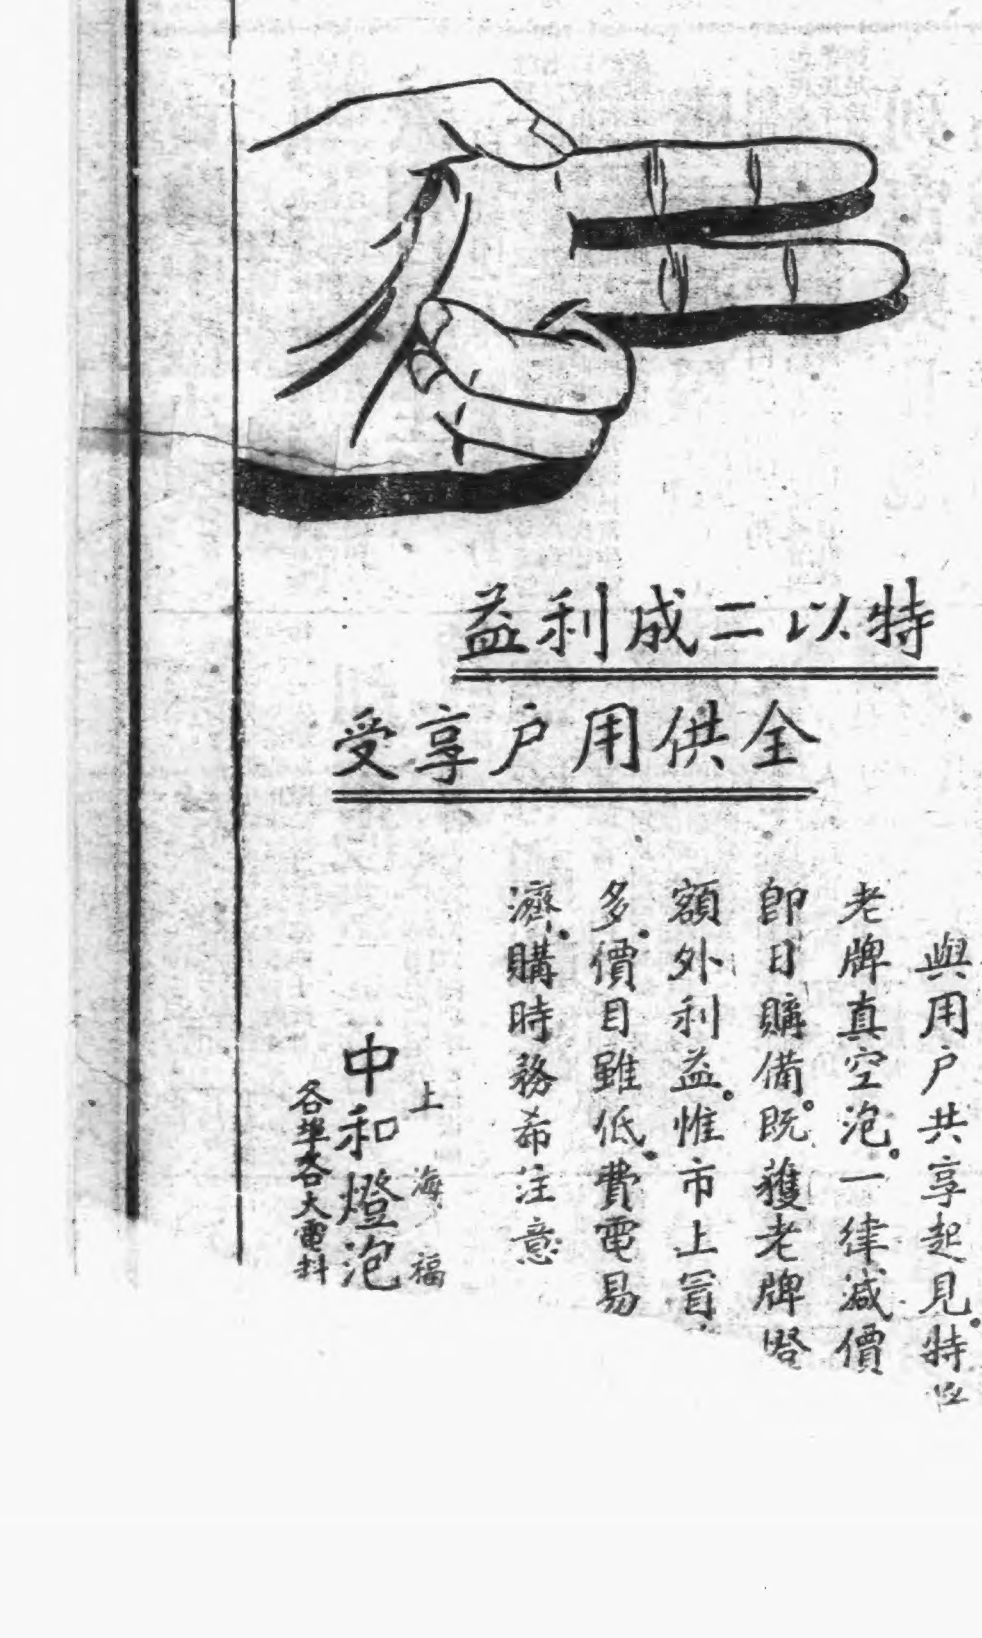 特以二成利益
全供用户享受
與用户共享起見。特
老牌真空泡。一律減價
即日購備。既獲老牌
額外利益。惟市上冒
多。價目雖低。費電易
濟。購時務希注意
上海福
中和燈泡
各埠各大電料